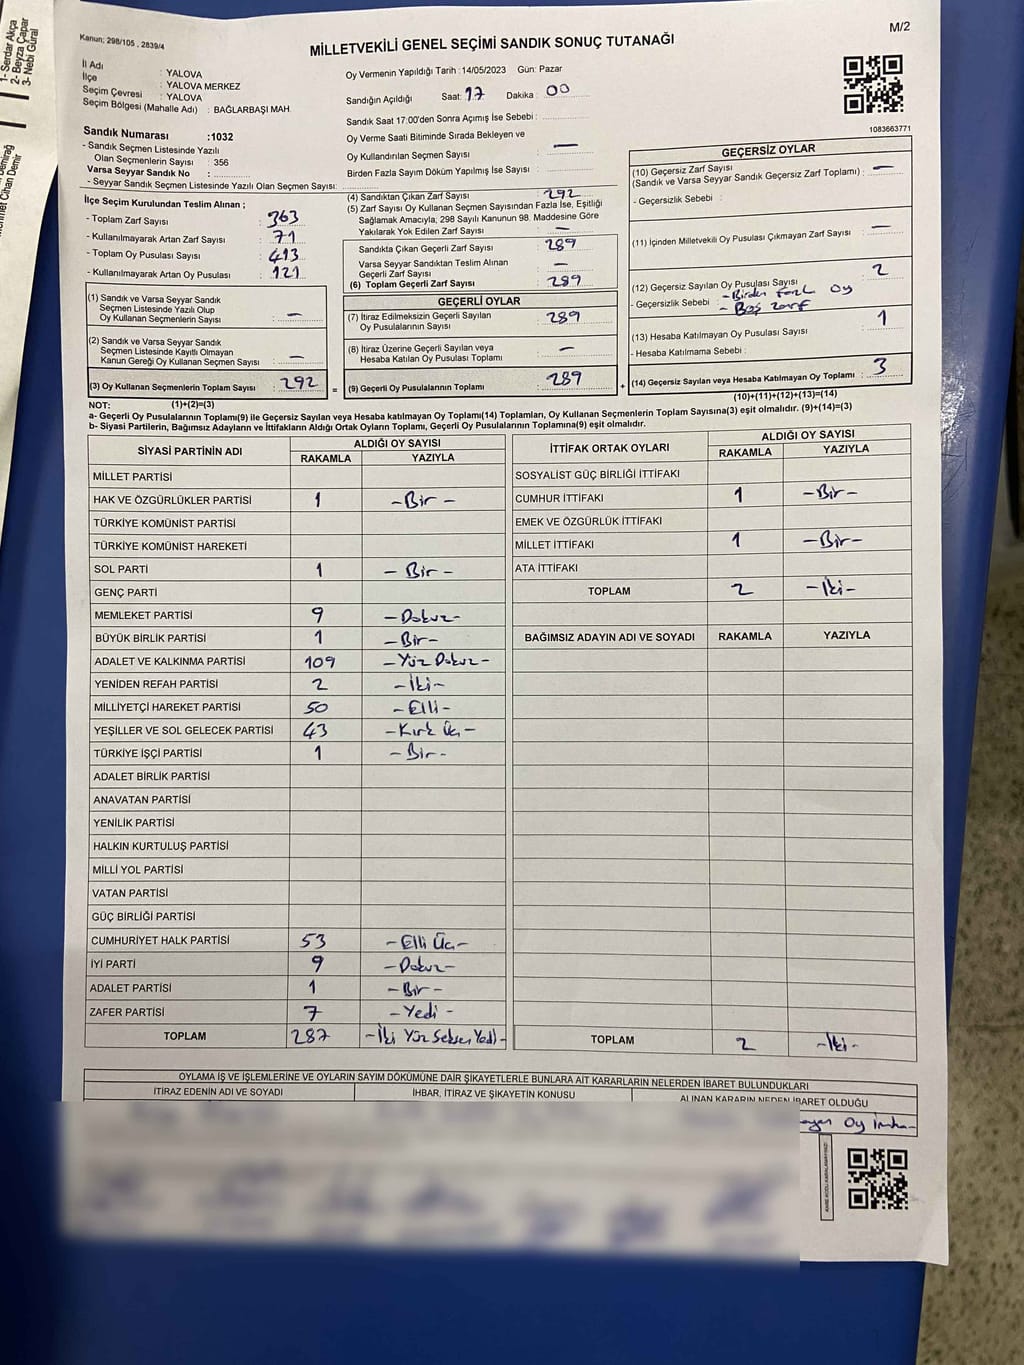 1- Serdar Akça
2- Beyza Çapar
3- Nebi Güral
Kanun; 298/105 , 2839/4
M/2
MİLLETVEKİLİ GENEL SEÇİMİ SANDIK SONUÇ TUTANAĞI
İl Adı : YALOVA
İlçe : YALOVA MERKEZ
Seçim Çevresi : YALOVA
Seçim Bölgesi (Mahalle Adı) : BAĞLARBAŞI MAH.
Sandık Numarası :1032
- Sandık Seçmen Listesinde Yazılı
Olan Seçmenlerin Sayısı : 356
Varsa Seyyar Sandık No :
- Seyyar Sandık Seçmen Listesinde Yazılı Olan Seçmen Sayısı:
Oy Vermenin Yapıldığı Tarih :14/05/2023 Gün: Pazar
Sandığın Açıldığı Saat: 17 Dakika : 00
Sandık Saat 17:00'den Sonra Açımış İse Sebebi :
Oy Verme Saati Bitiminde Sırada Bekleyen ve
Oy Kullandırılan Seçmen Sayısı : —
Birden Fazla Sayım Döküm Yapılmış İse Sayısı :
1083663771
İlçe Seçim Kurulundan Teslim Alınan ;
- Toplam Zarf Sayısı : 363
- Kullanılmayarak Artan Zarf Sayısı : 71
- Toplam Oy Pusulası Sayısı : 413
- Kullanılmayarak Artan Oy Pusulası : 121
(1) Sandık ve Varsa Seyyar Sandık
Seçmen Listesinde Yazılı Olup
Oy Kullanan Seçmenlerin Sayısı : —
(2) Sandık ve Varsa Seyyar Sandık
Seçmen Listesinde Kayıtlı Olmayan
Kanun Gereği Oy Kullanan Seçmen Sayısı : —
(3) Oy Kullanan Seçmenlerin Toplam Sayısı : 292 =
(4) Sandıktan Çıkan Zarf Sayısı : 292
(5) Zarf Sayısı Oy Kullanan Seçmen Sayısından Fazla İse, Eşitliği
Sağlamak Amacıyla; 298 Sayılı Kanunun 98. Maddesine Göre
Yakılarak Yok Edilen Zarf Sayısı : —
Sandıkta Çıkan Geçerli Zarf Sayısı : 289
Varsa Seyyar Sandıktan Teslim Alınan
Geçerli Zarf Sayısı : —
(6) Toplam Geçerli Zarf Sayısı : 289
GEÇERLİ OYLAR
(7) İtiraz Edilmeksizin Geçerli Sayılan
Oy Pusulalarının Sayısı : 289
(8) İtiraz Üzerine Geçerli Sayılan veya
Hesaba Katılan Oy Pusulası Toplamı : —
(9) Geçerli Oy Pusulalarının Toplamı : 289 +
GEÇERSİZ OYLAR
(10) Geçersiz Zarf Sayısı : —
(Sandık ve Varsa Seyyar Sandık Geçersiz Zarf Toplamı) :
- Geçersizlik Sebebi :
(11) İçinden Milletvekili Oy Pusulası Çıkmayan Zarf Sayısı : —
(12) Geçersiz Sayılan Oy Pusulası Sayısı : 2
- Geçersizlik Sebebi : -Birden fazla oy
- Boş zarf
(13) Hesaba Katılmayan Oy Pusulası Sayısı : 1
- Hesaba Katılmama Sebebi :
(14) Geçersiz Sayılan veya Hesaba Katılmayan Oy Toplamı : 3
NOT: (1)+(2)=(3) (10)+(11)+(12)+(13)=(14)
a- Geçerli Oy Pusulalarının Toplamı(9) ile Geçersiz Sayılan veya Hesaba katılmayan Oy Toplamı(14) Toplamları, Oy Kullanan Seçmenlerin Toplam Sayısına(3) eşit olmalıdır. (9)+(14)=(3)
b- Siyasi Partilerin, Bağımsız Adayların ve İttifakların Aldığı Ortak Oyların Toplamı, Geçerli Oy Pusulalarının Toplamına(9) eşit olmalıdır.
SİYASİ PARTİNİN ADI ALDIĞI OY SAYISI
RAKAMLA YAZIYLA
MİLLET PARTİSİ
HAK VE ÖZGÜRLÜKLER PARTİSİ 1 -Bir-
TÜRKİYE KOMÜNİST PARTİSİ
TÜRKİYE KOMÜNİST HAREKETİ
SOL PARTİ 1 -Bir-
GENÇ PARTİ
MEMLEKET PARTİSİ 9 -Dokuz-
BÜYÜK BİRLİK PARTİSİ 1 -Bir-
ADALET VE KALKINMA PARTİSİ 109 -Yüz Dokuz-
YENİDEN REFAH PARTİSİ 2 -İki-
MİLLİYETÇİ HAREKET PARTİSİ 50 -Elli-
YEŞİLLER VE SOL GELECEK PARTİSİ 43 -Kırk Üç-
TÜRKİYE İŞÇİ PARTİSİ 1 -Bir-
ADALET BİRLİK PARTİSİ
ANAVATAN PARTİSİ
YENİLİK PARTİSİ
HALKIN KURTULUŞ PARTİSİ
MİLLİ YOL PARTİSİ
VATAN PARTİSİ
GÜÇ BİRLİĞİ PARTİSİ
CUMHURİYET HALK PARTİSİ 53 -Elli Üç-
İYİ PARTİ 9 -Dokuz-
ADALET PARTİSİ 1 -Bir-
ZAFER PARTİSİ 7 -Yedi-
TOPLAM 287 -İki Yüz Seksen Yedi-
İTTİFAK ORTAK OYLARI ALDIĞI OY SAYISI
RAKAMLA YAZIYLA
SOSYALİST GÜÇ BİRLİĞİ İTTİFAKI
CUMHUR İTTİFAKI 1 -Bir-
EMEK VE ÖZGÜRLÜK İTTİFAKI
MİLLET İTTİFAKI 1 -Bir-
ATA İTTİFAKI
TOPLAM 2 -İki-
BAĞIMSIZ ADAYIN ADI VE SOYADI RAKAMLA YAZIYLA
TOPLAM 2 -İki-
OYLAMA İŞ VE İŞLEMLERİNE VE OYLARIN SAYIM DÖKÜMÜNE DAİR ŞİKAYETLERLE BUNLARA AİT KARARLARIN NELERDEN İBARET BULUNDUKLARI
İTİRAZ EDENİN ADI VE SOYADI İHBAR, İTİRAZ VE ŞİKAYETİN KONUSU ALINAN KARARIN NEDEN İBARET OLDUĞU
Oy imha